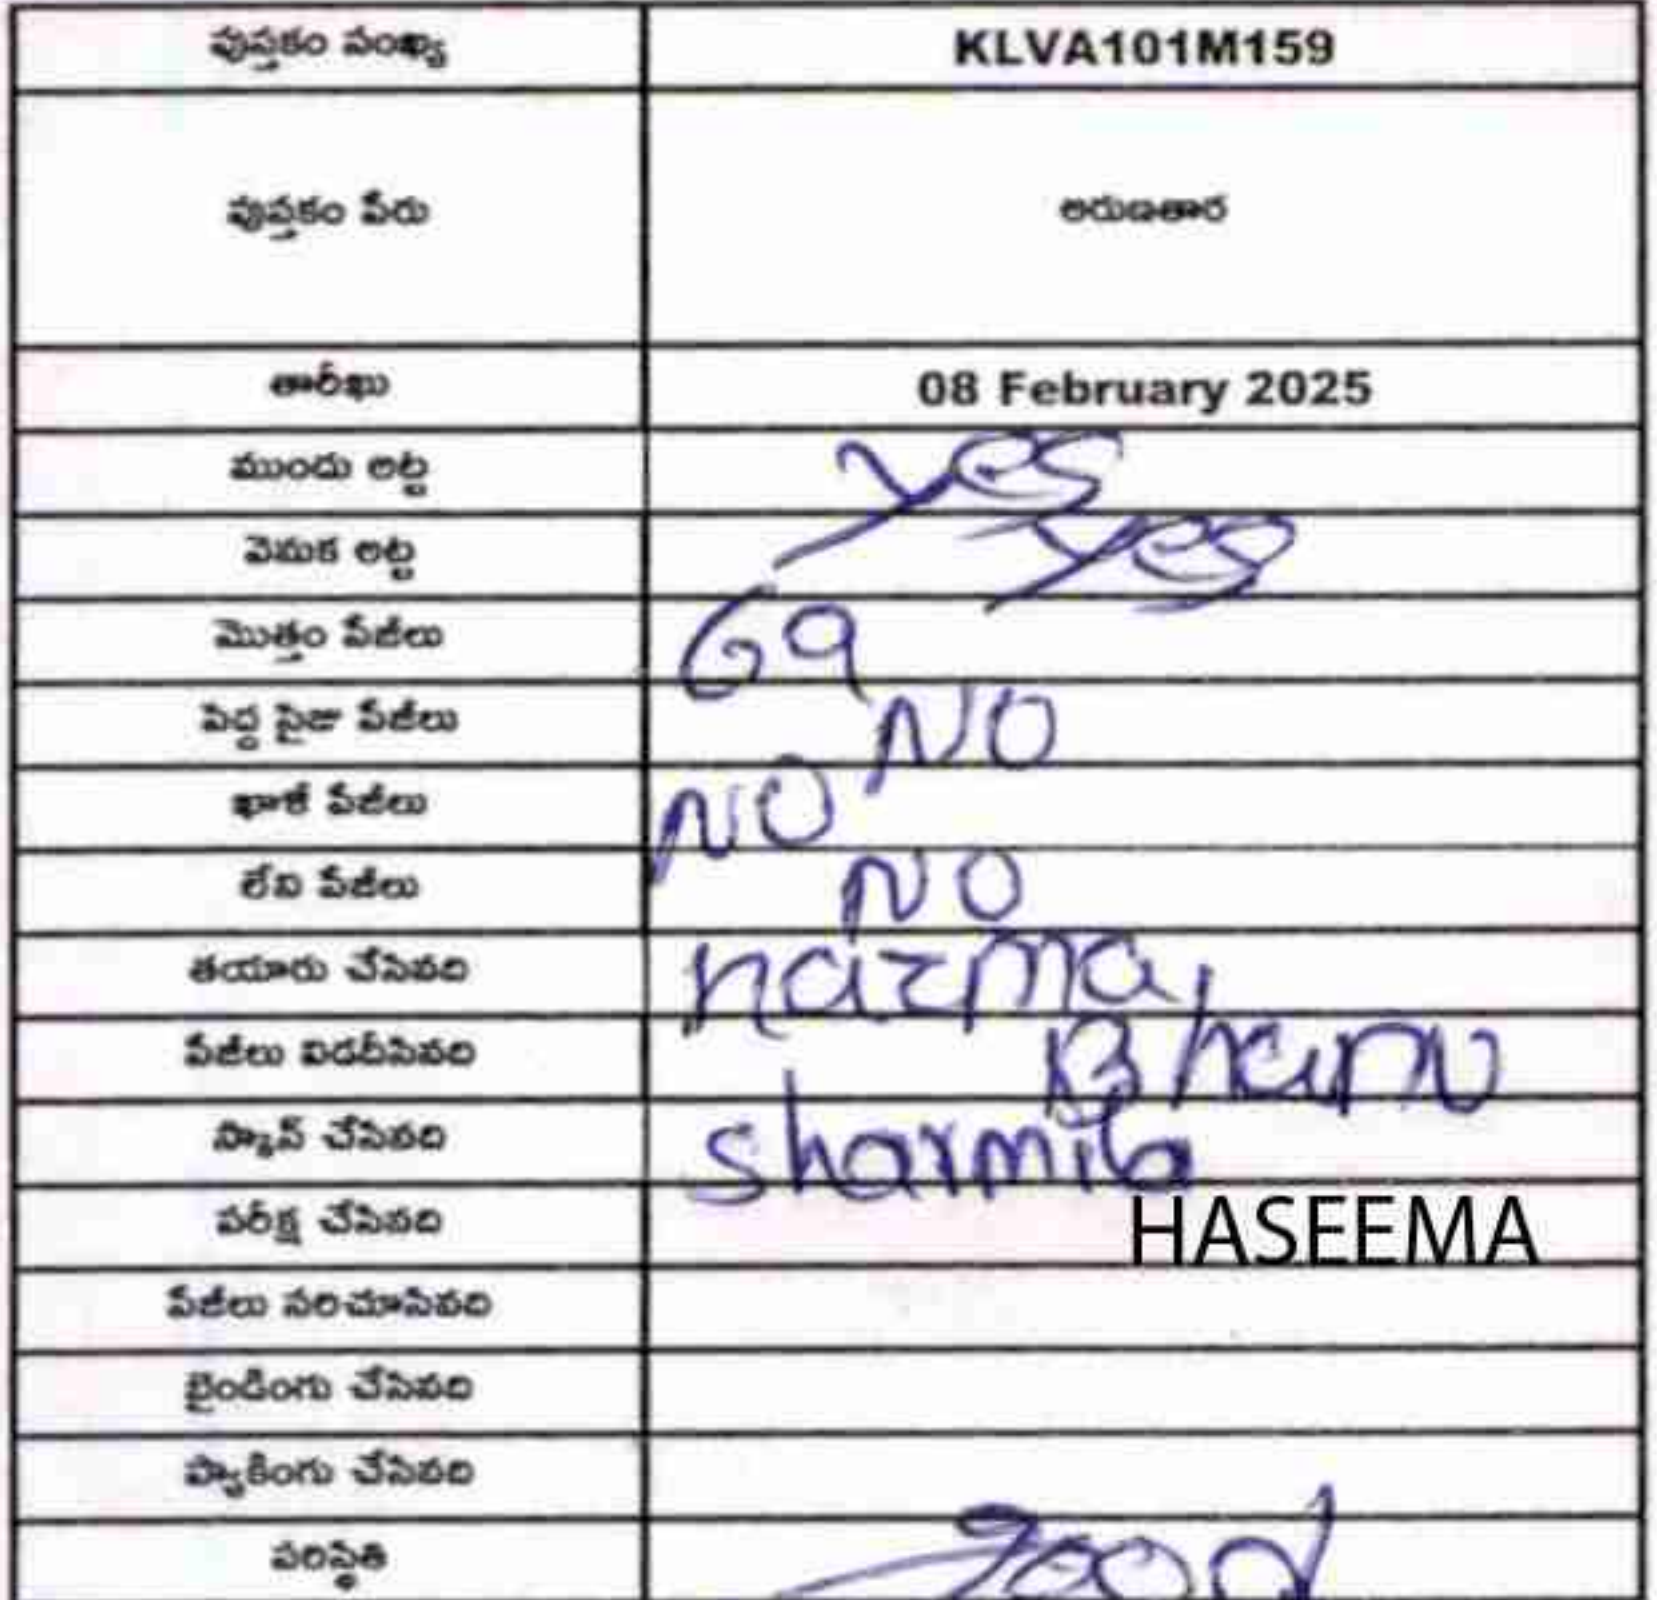 పుస్తకం సంఖ్య KLVA101M159
పుస్తకం పేరు అరుణతార
తారీఖు 08 February 2025
ముందు అట్ట yes
వెనుక అట్ట yes
మొత్తం పేజీలు 69
పెద్ద సైజు పేజీలు NO
ఖాళీ పేజీలు NO
లేని పేజీలు NO
తయారు చేసినది nazma
పేజీలు విడదీసినది Bhanu
స్కాన్ చేసినది sharmila
పరీక్ష చేసినది HASEEMA
పేజీలు సరిచూసినది
బైండింగు చేసినది
ప్యాకింగు చేసినది
పరిస్థితి good